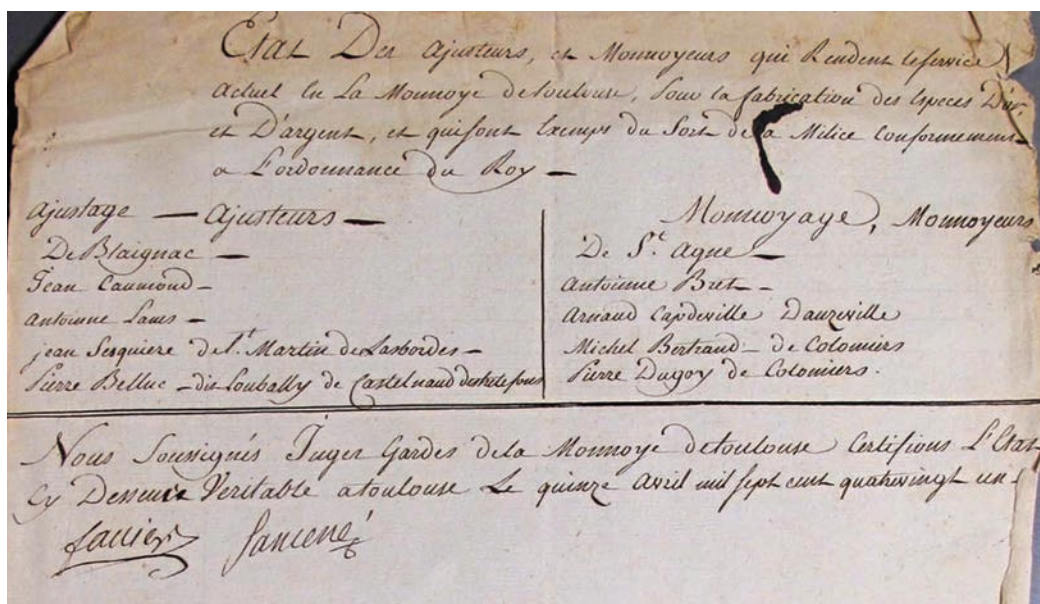 Etat Des Ajusteurs, et Monnoyeurs qui Rendent le service
Actuel En La Monnoye de toulouse, Pour la fabrication des Especes D'or
et D'argent, et qui sont Exempts du Sort de la Milice Conformement
a L'ordonnance du Roy —
Ajustage — Ajusteurs —
De Blaignac —
Jean Caumond —
Antoinne Lanes —
jean Sesquiere de St. Martin de Lasbordes —
Pierre Belluc — dit Loubally de Castelnaud destretefons
Monnoyage, Monnoyeurs
De St. Agne —
Antoinne Bret —
Arnaud Capdeville Dauzeville
Michel Bertrand — de Colomiers
Pierre Dugoy de Colomiers.
Nous Soussignés Juges Gardes de la Monnoye de toulouse Certifions L'Etat
Cy Dessus Veritable a toulouse Le quinze Avril mil sept cent quatrevingt un